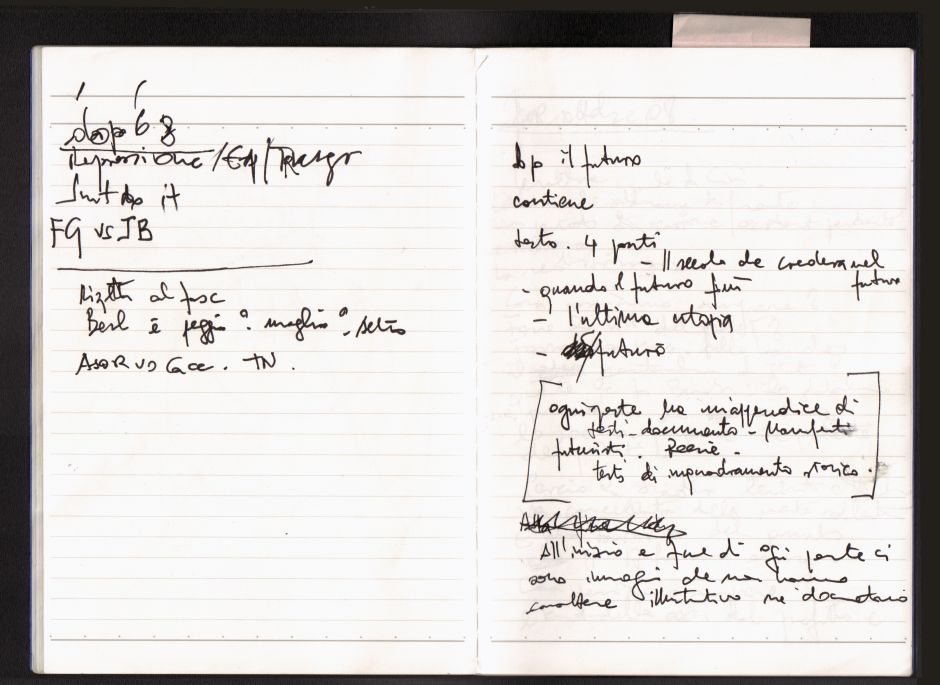 dop 68
Repressione /
it
FG vs JB
al fasc
Berl è peggio o meglio o
AsoR vs Cacc. TN.
Dp il futuro
contiene
testo. 4 parti
- Il secolo che credeva nel
futuro
- quando il futuro finì
- l'ultima utopia
- futuro
ogni parte ha un'appendice di
testi-documento - Manifesti
futuristi. Poesie.
testi di inquadramento storico.
All'inizio e fine di ogi parte ci
sono immagi che non hanno
carattere illustrativo né